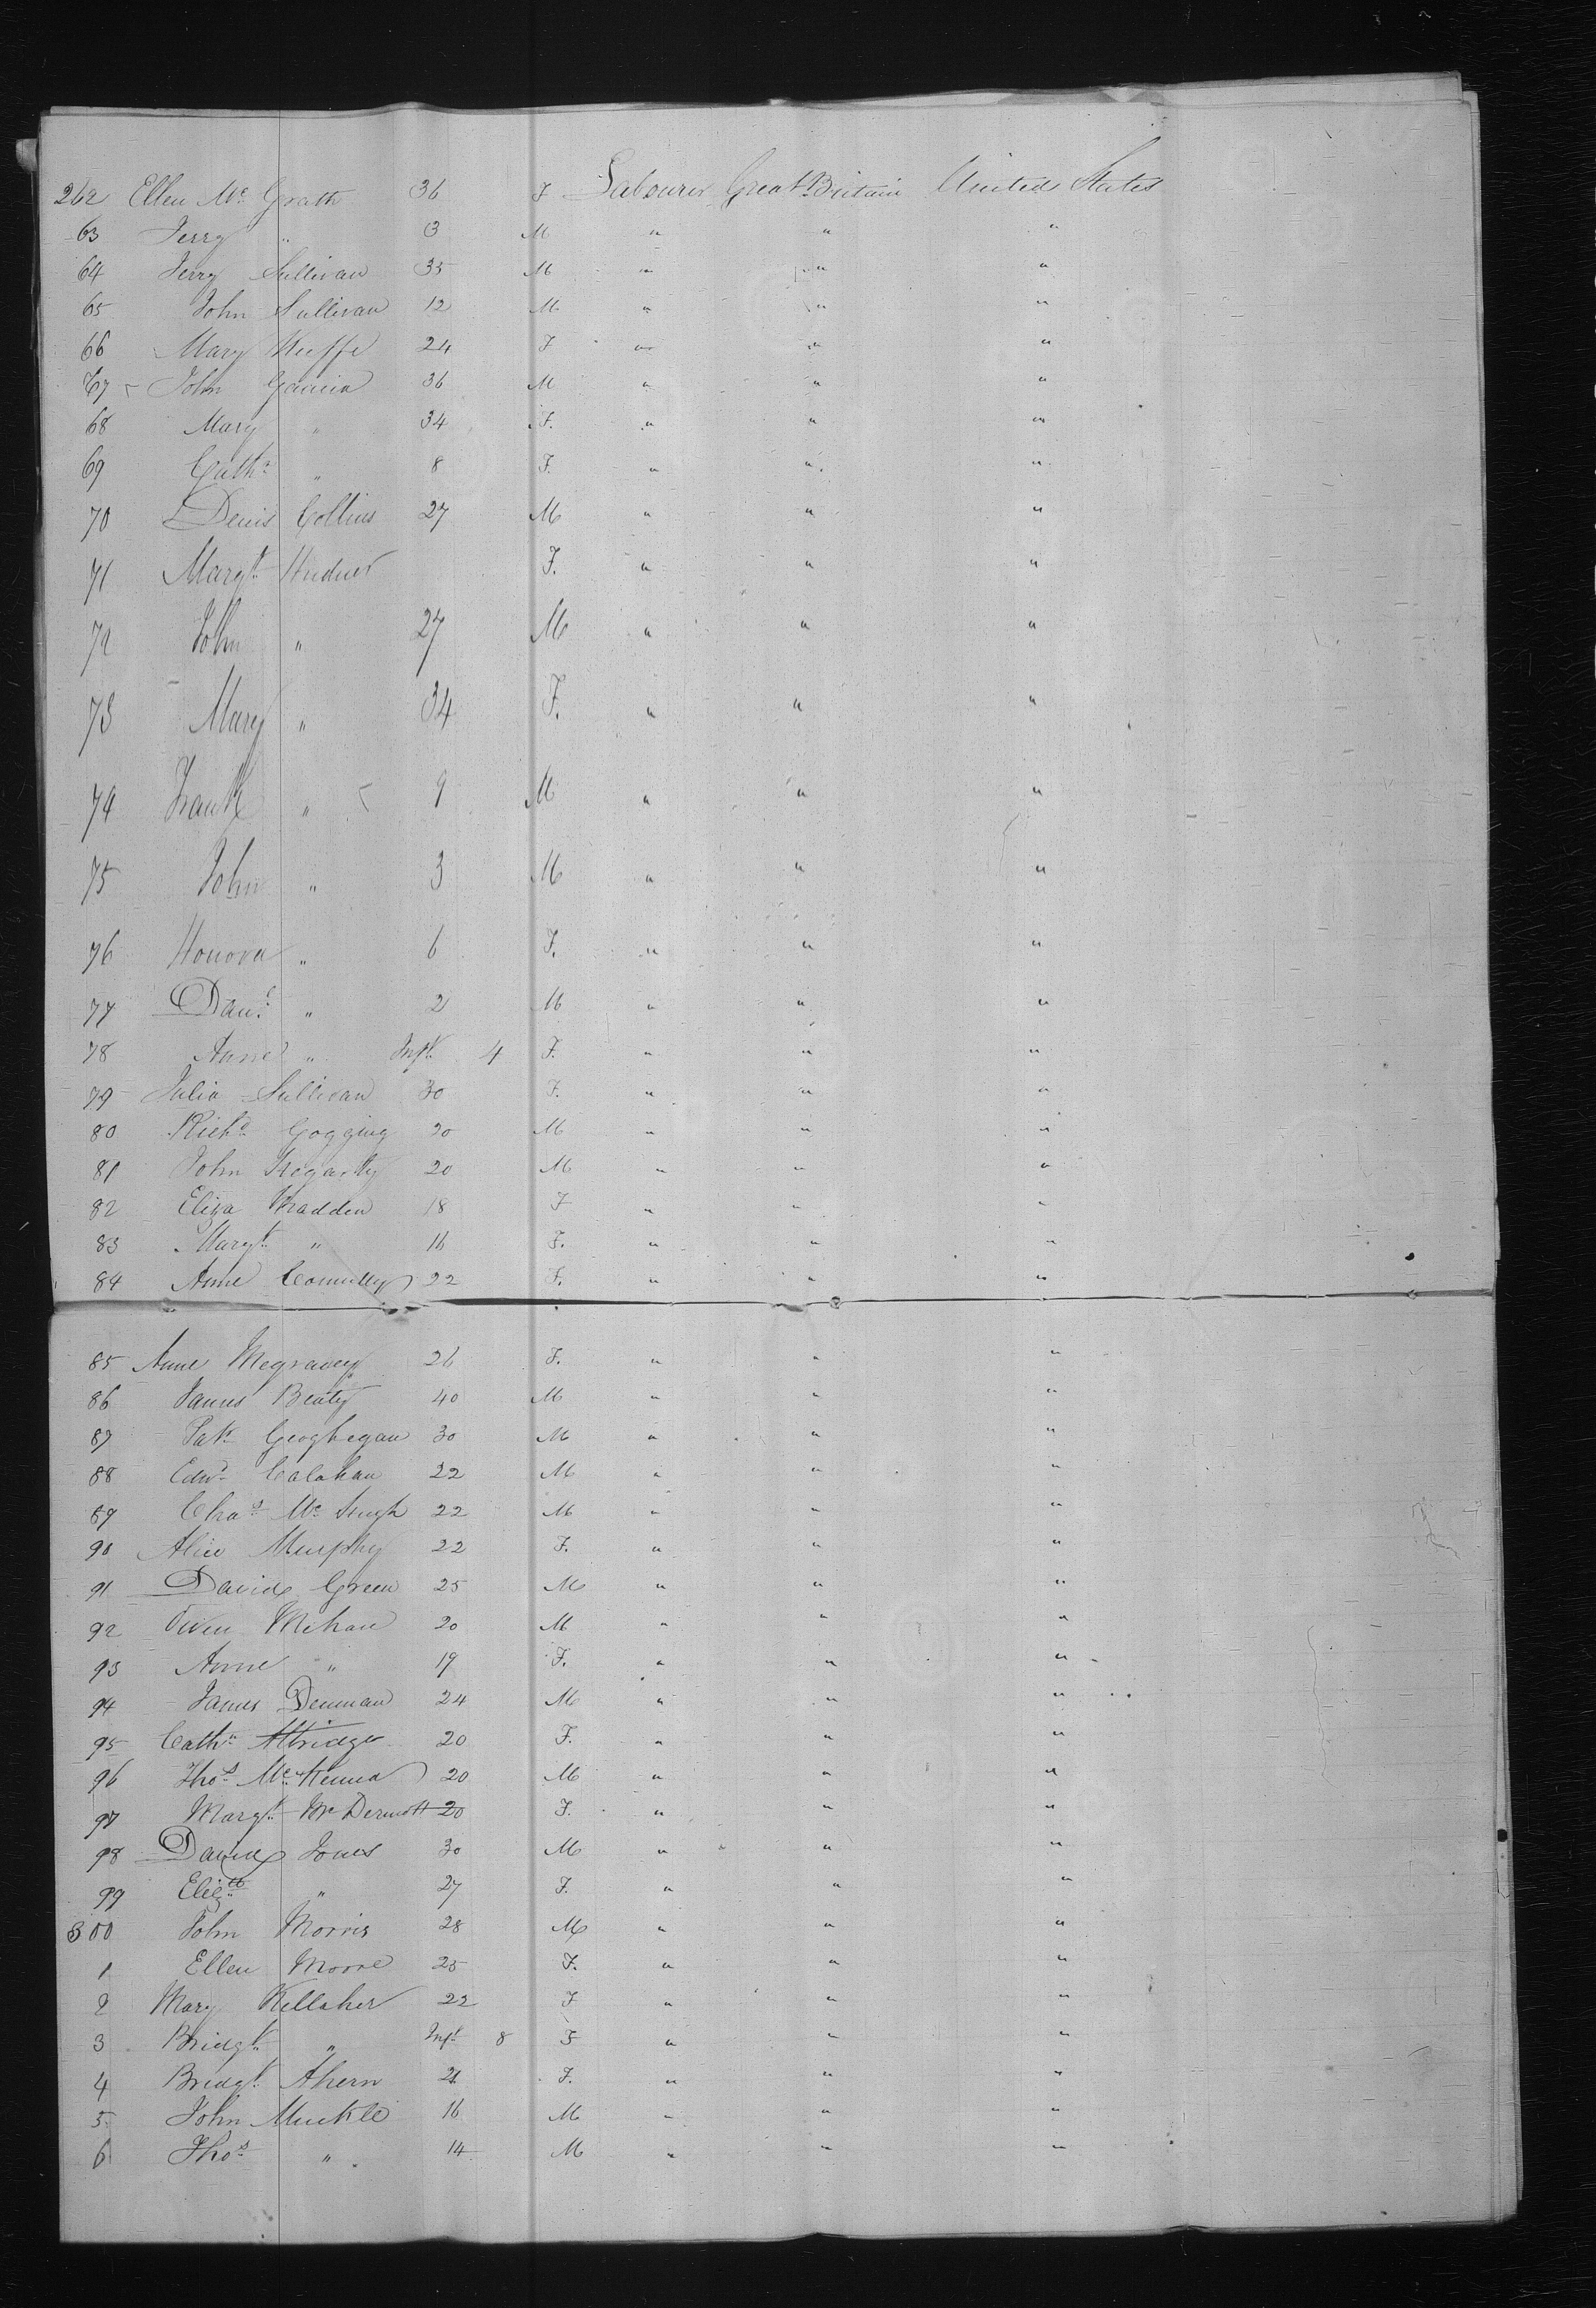 262 Ellen Mc Grath 36 F Labourer Great Britain United States
63 Jerry " 3 M " " "
64 Jerry Sullivan 35 M " " "
65 John Sullivan 12 M " " "
66 Mary Keeffe 24 F " " "
67 John 36 M " " "
68 Mary " 34 F. " " "
69 Cathe " 8 F. " " "
70 Denis Collins 27 M " " "
71 Margt F. " " "
72 John " 27 M " " "
73 Mary " 34 F. " " "
74 Frank " 9 M " " "
75 John " 3 M " " "
76 Honora " 6 F. " " "
77 Danl " 2 M " " "
78 Anne " Inft 4 F. " " "
79 Julia Sullivan 30 F. " " "
80 Richd Gogging 20 M " " "
81 John Hegarty 20 M " " "
82 Eliza Madden 18 F " " "
83 Margt " 16 F. " " "
84 Anne Connelly 22 F. " " "
85 Anne Megravey 26 F. " " "
86 James Beaty 40 M " " "
87 Patk Geoghegan 30 M " " "
88 Edwd Calahan 22 M " " "
89 Chas Mc Hugh 22 M " " "
90 Alice Murphy 22 F. " " "
91 David Green 25 M " " "
92 Owen Mehan 20 M " " "
93 Anne " 19 F. " " "
94 James Denman 24 M " " "
95 Cathe Attridge 20 F. " " "
96 Thos Mc Kenna 20 M " " "
97 Margt Mc Dermott 20 F. " " "
98 David Jones 30 M " " "
99 Elizth " 27 F. " " "
300 John Morris 28 M " " "
1 Ellen Moore 25 F. " " "
2 Mary Kellaher 22 F " " "
3 Bridgt " Inft 8 F " " "
4 Bridgt Ahern 21 F. " " "
5 John Muckle 16 M " " "
6 Thos " 14 M " " "